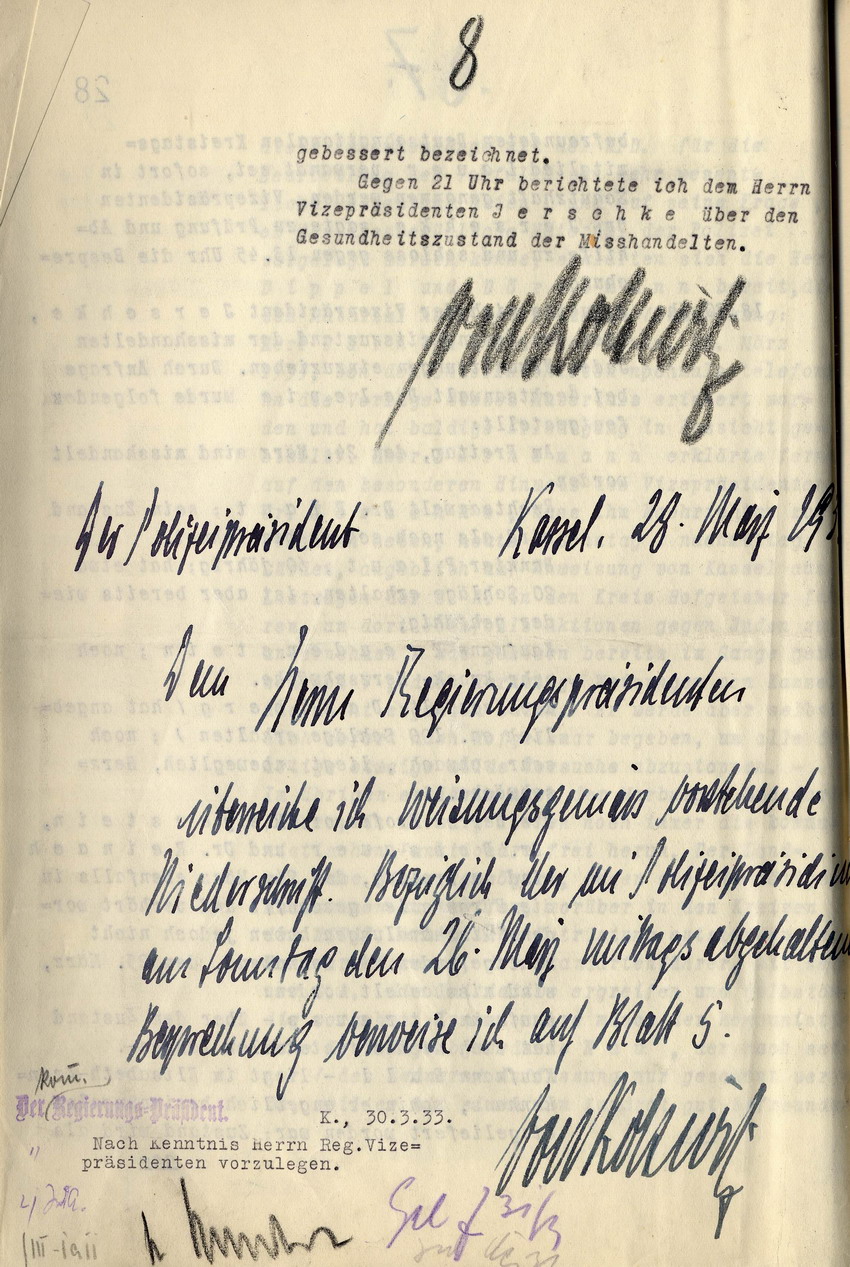 8
gebessert bezeichnet.
Gegen 21 Uhr berichtete ich dem Herrn
Vizepräsidenten J e r s c h k e über den
Gesundheitszustand der Misshandelten.
von Kottwitz
Der Polizeipräsident
Kassel, 28. März 19
Dem Herrn Regierungspräsidenten
überreiche ich weisungsgemäss vorstehende
Niederschrift. Bezüglich der im Polizeipräsidium
am Sonntag den 26. März mittags abgehaltenen
Besprechung verweise ich auf Blatt 5.
von Kottwitz
kom.
Der Regierungs-Präsident.
K., 30.3.33.
Nach Kenntnis Herrn Reg.Vize=
präsidenten vorzulegen.